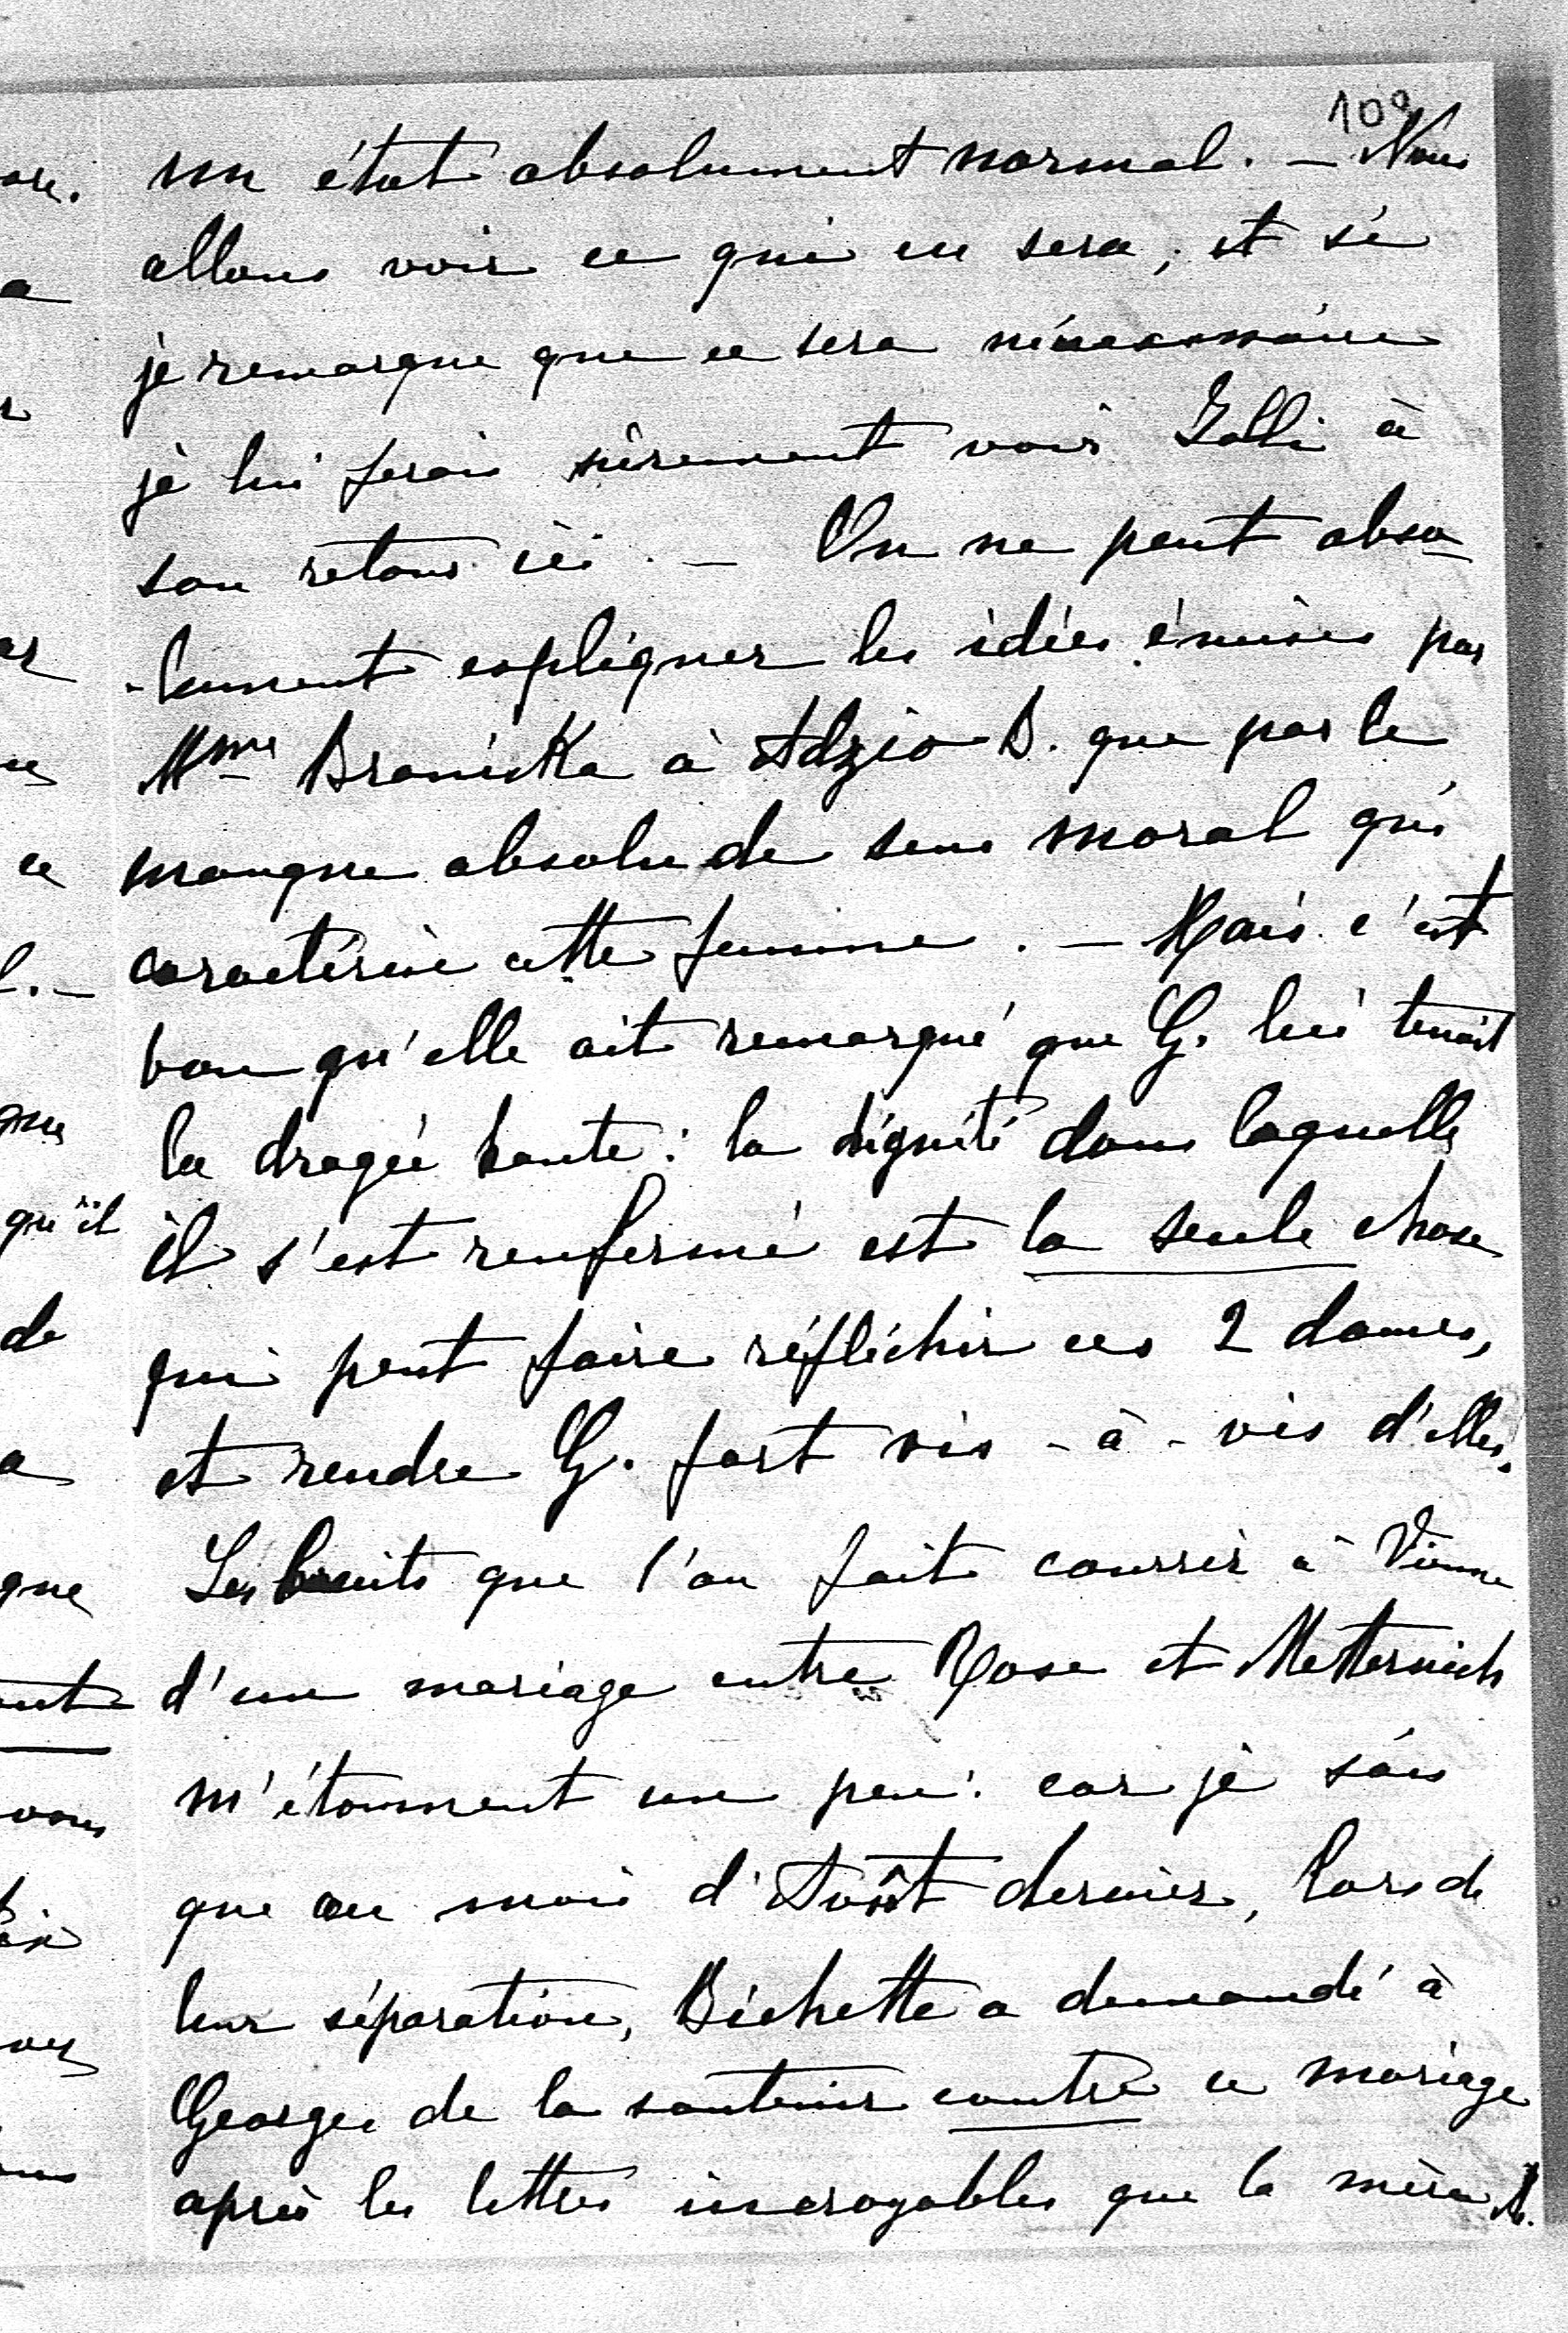 109
un état absolument normal. – Nous
allons voir ce qui en sera, et si
je remarque que ce sera nécessaire
je lui ferai sûrement voir Galli à
son retour ici. – On ne peut abso-
-lument expliquer les idées émises par
Mme Branicka à Adzio B. que par le
manque absolu de sens moral qui
caractérise cette femme. – Mais c'est
bon qu'elle ait remarqué que G. lui tenait
la dragée haute: la dignité dans laquelle
il s'est renfermé est la seule chose
qui peut faire réfléchir ces 2 dames,
et rendre G. fort vis-à-vis d'elles.
Les bruits que l'on fait courrir à Vienne
d'un mariage entre Rose et Metternich
m'étonnent un peu: car je sais
que au mois d'Août dernier, lors de
leur séparation, Bichette a demandé à
Georges de la soutenir contre ce mariage
après les lettres incroyables que la mère